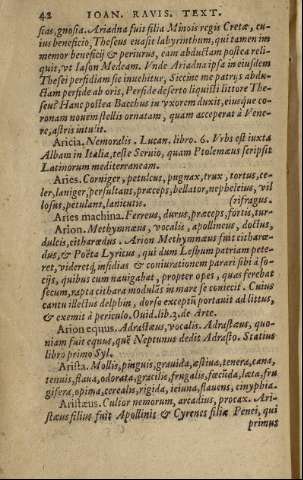 42 IOAN. RAVIS. TEXT.
sias, gnosia. Ariadna fuit filia Minois regis Cretæ, cu-
ius beneficio Theseus euasit labyrinthum, qui tamen im
memor beneficij & periurus, eam abductam postea reli-
quit, vt Iason Medeam. Vnde Ariadna ipsa in eiusdem
Thesei perfidiam sic inuehitur, Siccine me patrijs abduc
tam perfide ab oris, Perfide deserto liquisti littore The-
seu? Hanc postea Bacchus in vxorem duxit, eiusque co-
ronam nouem stellis ornatam, quam acceperat à Vene-
re, astris intulit.
Aricia. Nemoralis. Lucan. libro. 6. Vrbs est iuxta
Albam in Italia, teste Seruio, quam Ptolemæus scripsit
Latinorum mediterraneam.
Aries. Corniger, petulcus, pugnax, trux, tortus, ce-
ler, laniger, persultans, præceps, bellator, nepheleius, vil
losus, petulans, lanicutis. (rifragus.
Aries machina. Ferreus, durus, præceps, fortis, tur-
Arion. Methymnæus, vocalis, apollineus, doctus,
dulcis, citharœdus. Arion Methymnæus fuit citharœ-
dus, & Poëta Lyricus, qui dum Lesbum patriam pete-
ret, videretq, insidias & coniurationem parari sibi à so-
cijs, quibus cum nauigabat, propter opes, quas ferebat
secum, rapta cithara modulãs in mare se coniecit. Cuius
cantu illectus delphin, dorso exceptũ portauit ad littus,
& exemit à periculo. Ouid. lib. 2. de Arte.
Arion equus. Adrastæus, vocalis. Adrastæus, quo-
niam fuit equus, quẽ Neptunus dedit Adrasto. Statius
libro primo Syl.
Arista. Mollis, pinguis, grauida, æstiua, tenera, cana,
tenuis, flaua, odorata, gracilis, frugalis, fœcũda, læta, fru
gifera, opima, cerealis, rigida, ieiuna, flauens, cinyphia.
Aristæus. Cultor nemorum, arcadius, procax. Ari-
stæus filius fuit Apollinis & Cyrenes filiæ Penei, qui
primus